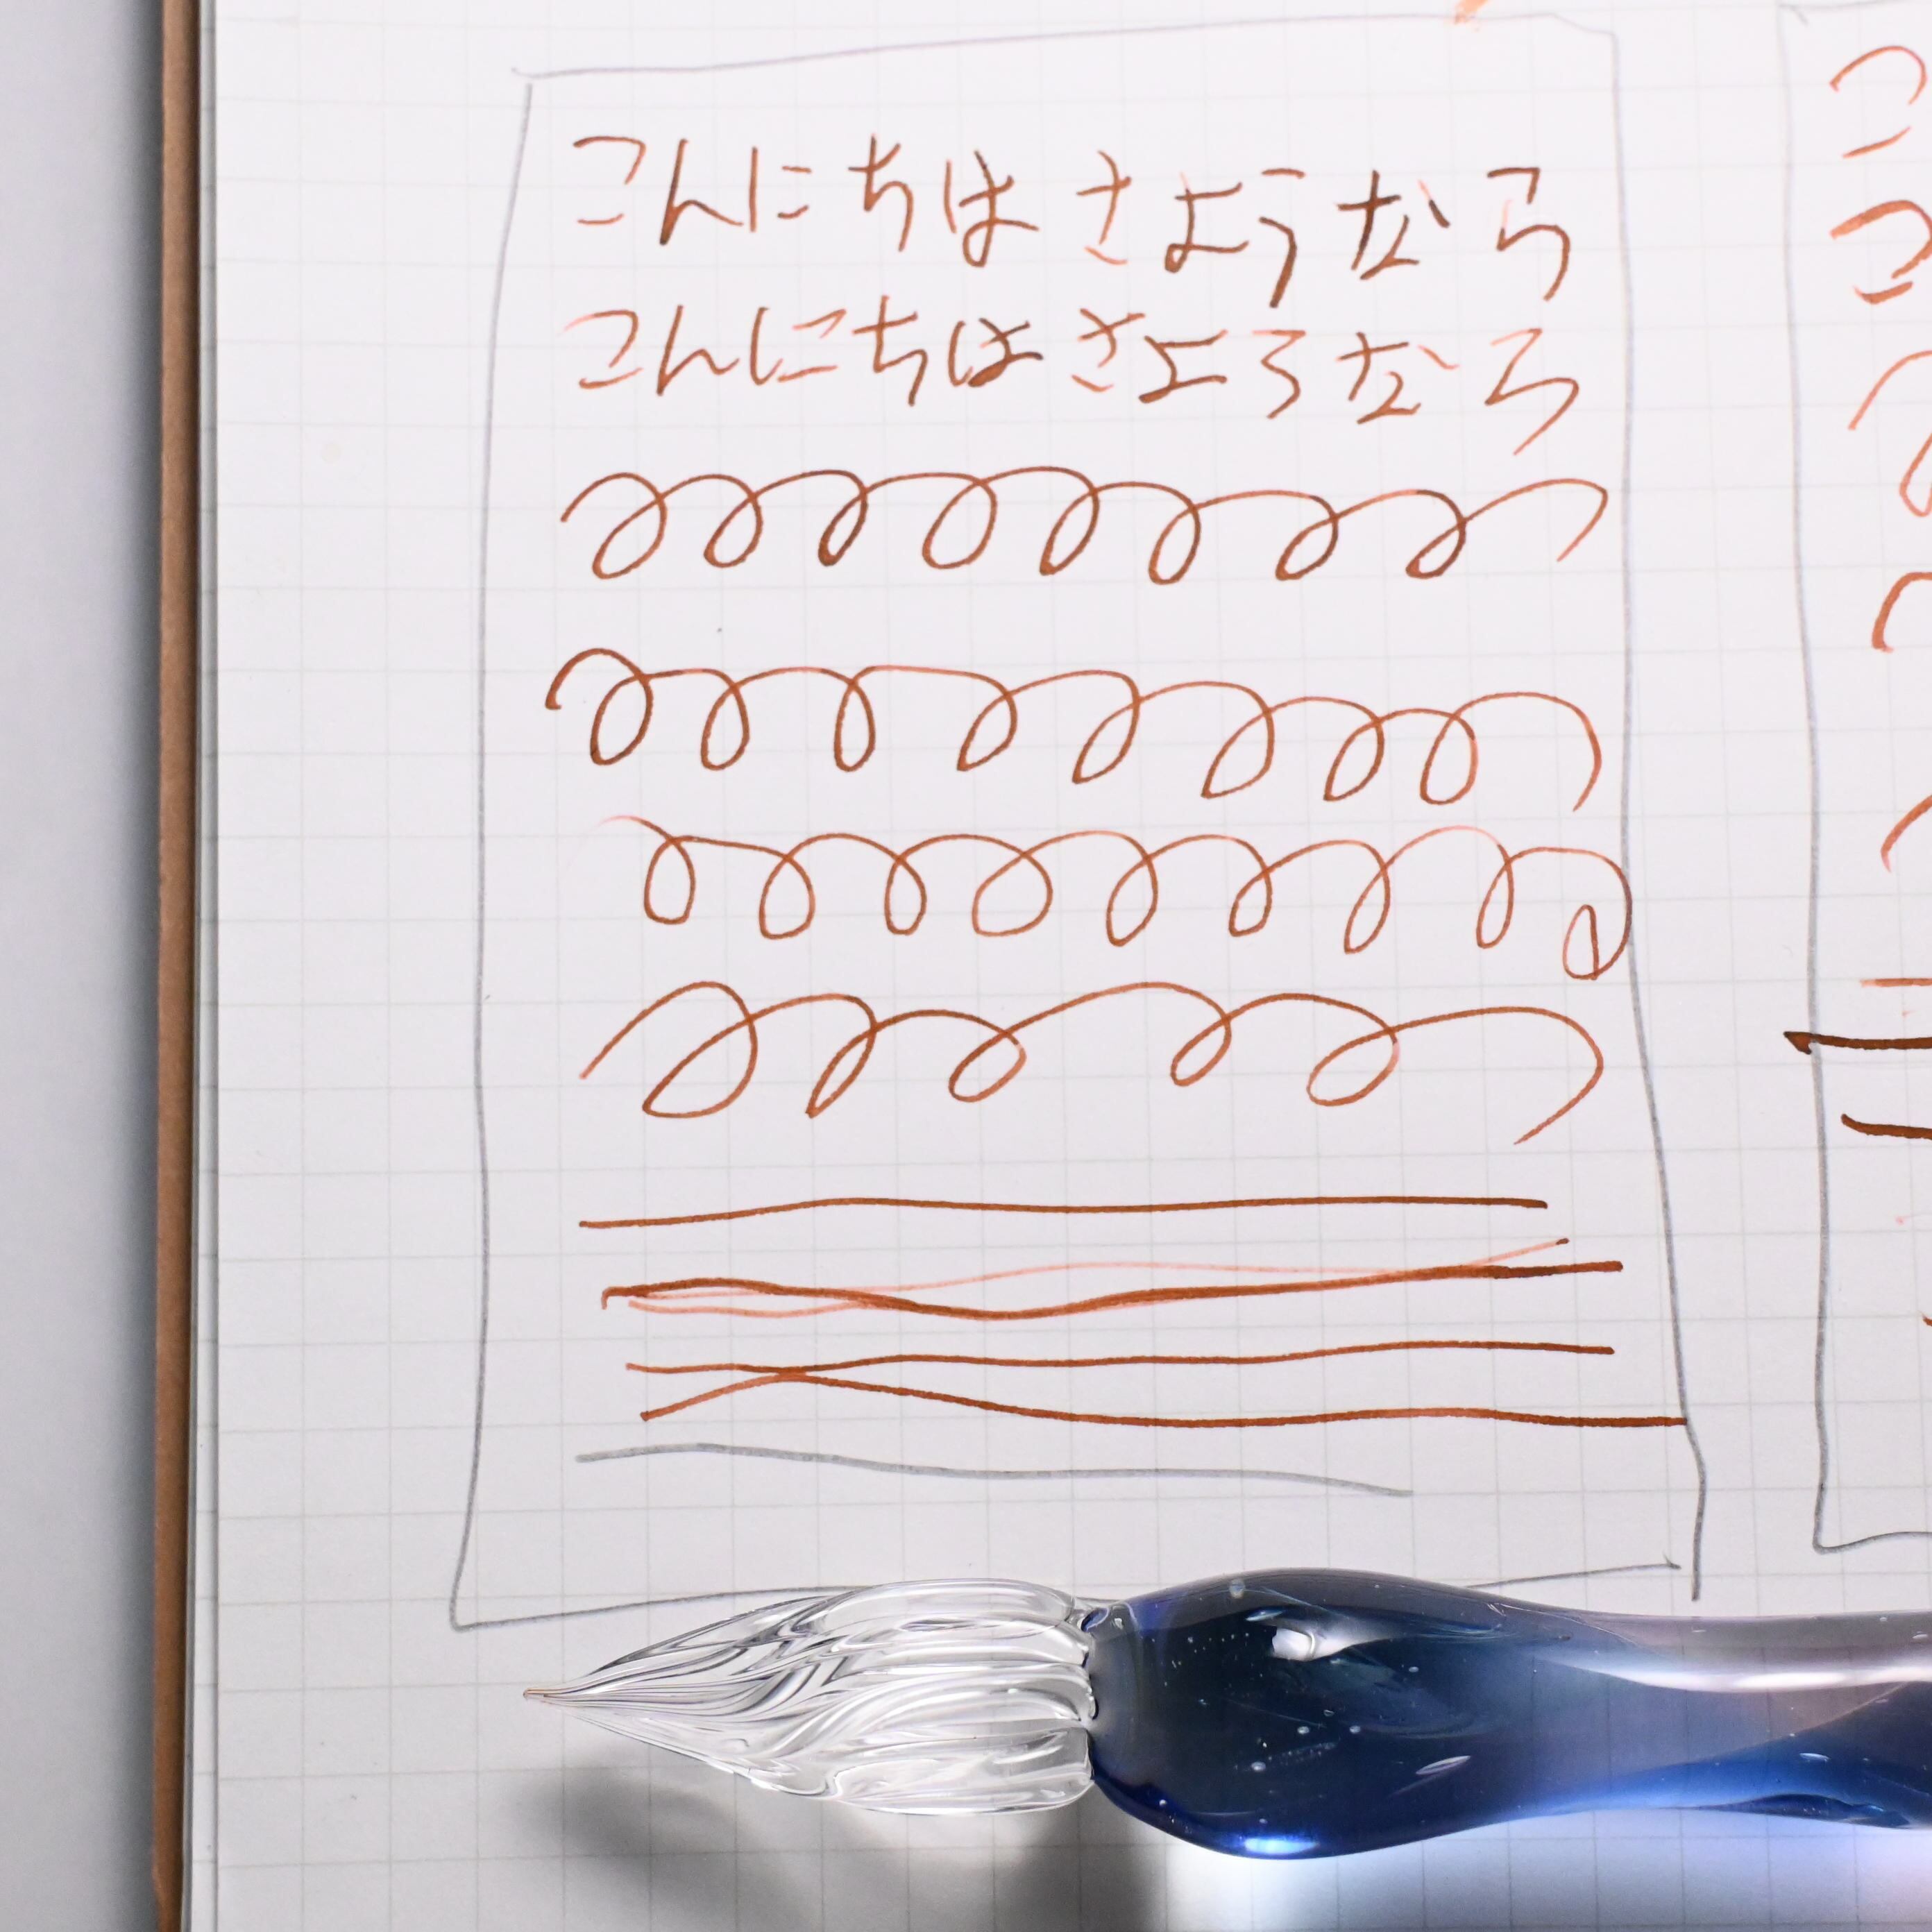 こんにちは さようなら
こんにちは さようなら